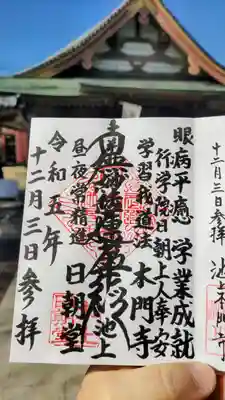 眼病平癒 学業成就
行学院日朝上人奉安
学習我道法 本門寺
南無妙法蓮華経
池上
昼夜常精進 日朝堂
令和五年
十二月三日参拝
十二月三日参拝
池上本門寺